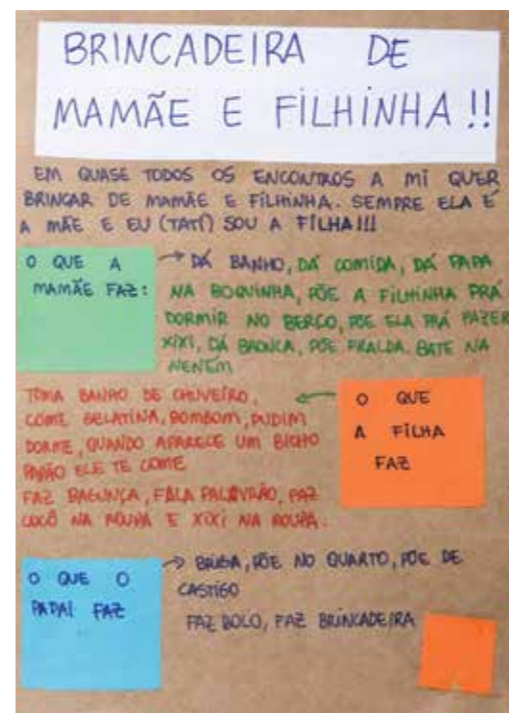 BRINCADEIRA DE
MAMÃE E FILHINHA!!
EM QUASE TODOS OS ENCONTROS A MI QUER
BRINCAR DE MAMÃE E FILHINHA. SEMPRE ELA É
A MÃE E EU (TATÍ) SOU A FILHA!!!
O QUE A
MAMÃE FAZ:
→ DÁ BANHO, DÁ COMIDA, DÁ PAPA
NA BOQUINHA, PÕE A FILHINHA PRÁ
DORMIR NO BERÇO, PÕE ELA PRÁ FAZER
XIXI, DÁ BRONCA, PÕE FRALDA. BATE NA
NENÉM
TOMA BANHO DE CHUVEIRO,
COME GELATINA, BOMBOM, PUDIM
DORME, QUANDO APARECE UM BICHO
PAPÃO ELE TE COME
FAZ BAGUNÇA, FALA PALAVRÃO, FAZ
COCÔ NA ROUPA E XIXI NA ROUPA.
← O QUE
A FILHA
FAZ
O QUE O
PAPAI FAZ
→ BRIGA, PÕE NO QUARTO, PÕE DE
CASTIGO
FAZ BOLO, FAZ BRINCADEIRA